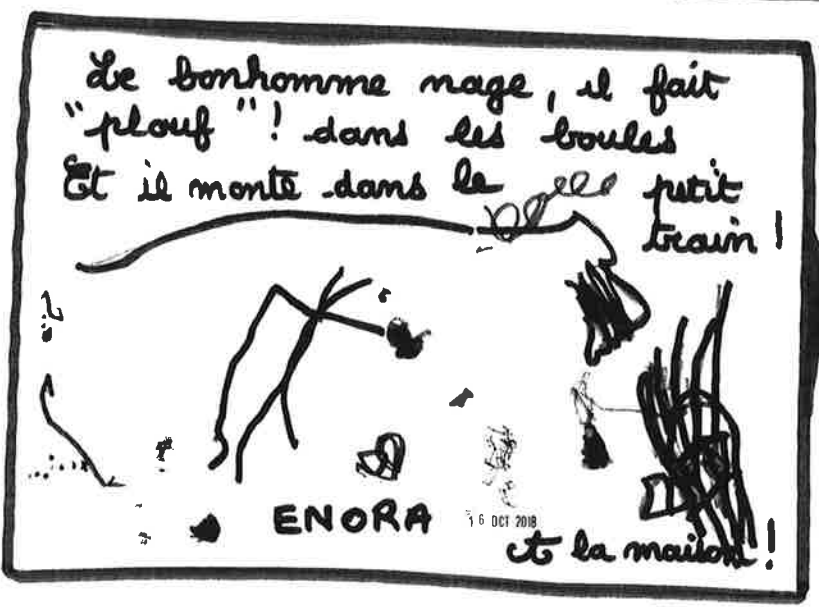 Le bonhomme nage, il fait
"plouf"! dans les boules
Et il monte dans le petit
train !
ENORA
16 OCT 2018
et la maison !